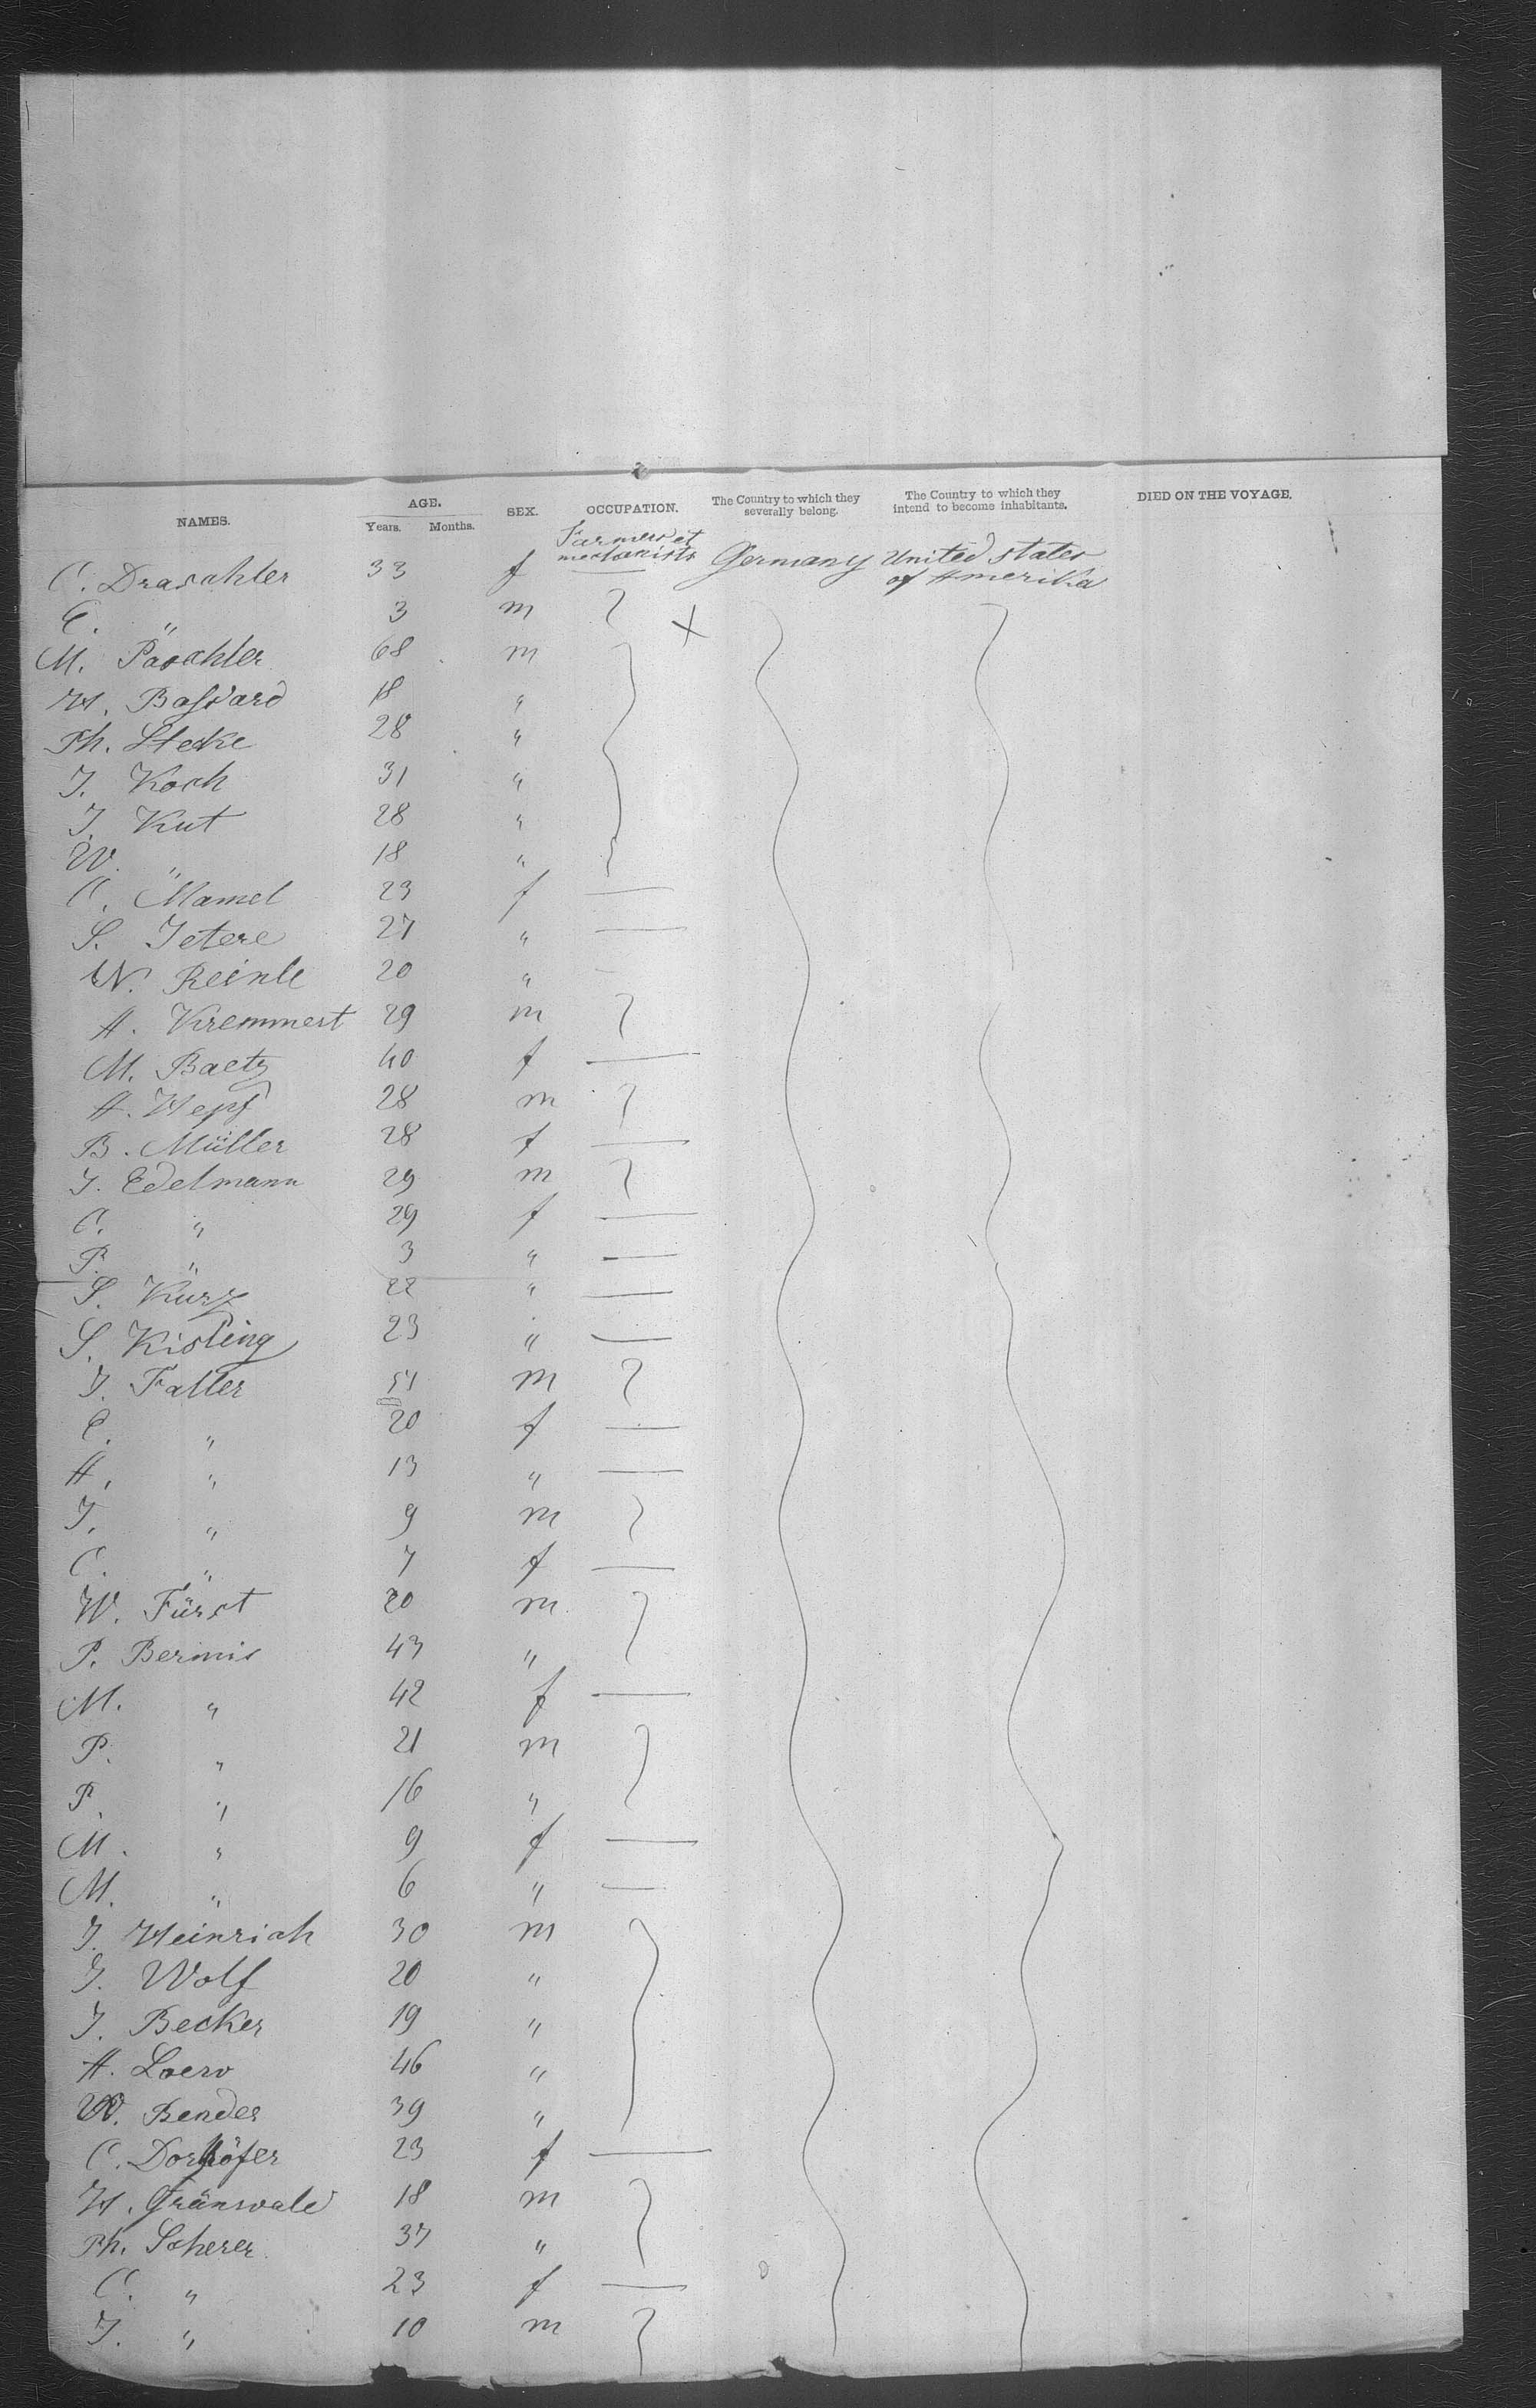 NAMES. AGE. Years. Months. SEX. OCCUPATION. The Country to which they severally belong. The Country to which they intend to become inhabitants. DIED ON THE VOYAGE.
Farmers et mechanists
C. Draschler 33 f — Germany United States of Amerika
E. " 3 m
M. Paschler 68 m
H. Bassard 18 "
Ph. Stecke 28 "
J. Koch 31 "
J. Kut 28 "
W. " 18 "
C. Mamel 23 f —
S. Jetere 27 " —
W. Reinle 20 " —
A. Kremmert 29 m
M. Baetz 40 f —
A. Hepf 28 m
B. Müller 28 f —
J. Edelmann 29 m
C. " 29 f —
P. " 3 " —
S. Kurz 22 " —
S. Kisling 23 " —
J. Faller 51 m
E. " 20 f —
A. " 13 " —
J. " 9 m
C. " 7 f —
W. Fürst 20 m
P. Bermis 43 "
M. " 42 f —
P. " 21 m
P. " 16 "
M. " 9 f —
M. " 6 " —
J. Heinrich 30 m
J. Wolf 20 "
J. Becker 19 "
A. Loew 46 "
W. Bender 39 "
C. Dorhöfer 23 f —
H. Grünwald 18 m
Ph. Scherer 37 "
C. " 23 f —
J. " 10 m